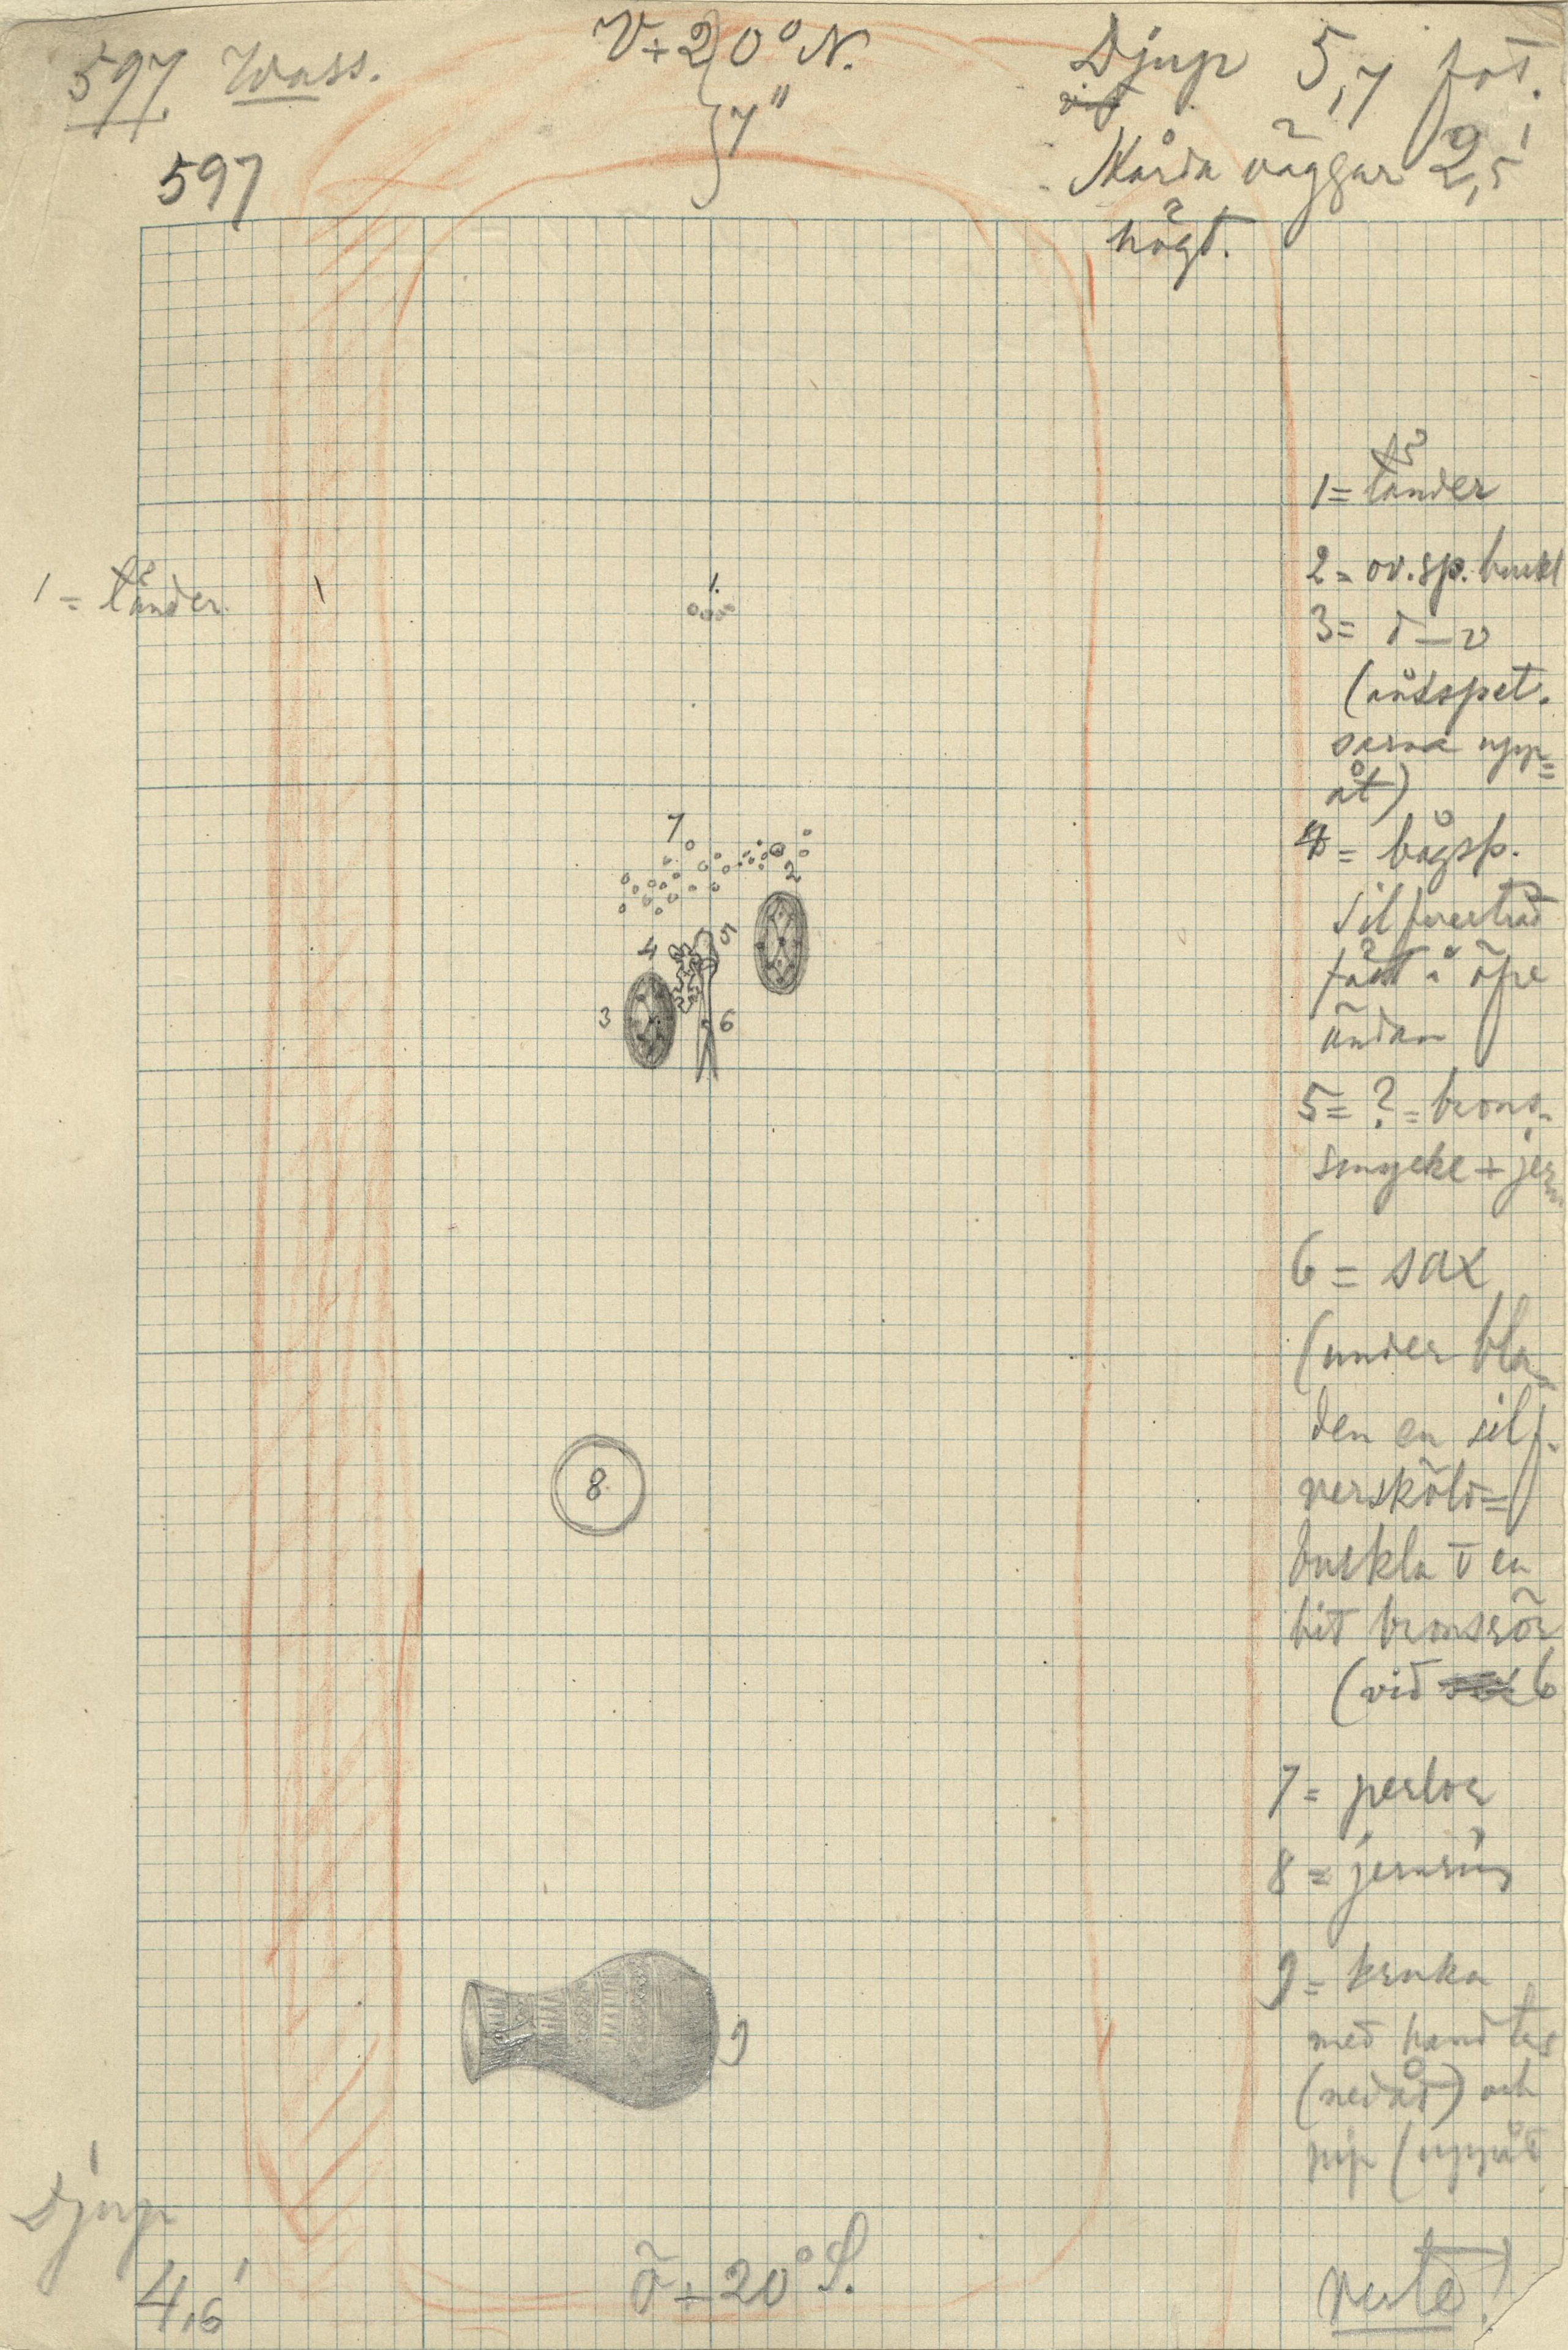 597. Wass.
597
V+20° N.
7"
Djup 5,7 fot.
Hårda väggar 2,5'
högt.
1 = tänder
1
1.
1 = tänder
2 = ov. sp. buckl
3 = d – v
(ändspet.
sarna upp=
åt)
4 = bågsp.
silfvertråd
fäst i öfre
ändan
5 = ? = brons-
smycke + jern
6 = sax
(under bla
den en silf-
versköld=
buckla o en
bit bronsrör
(vid 6
7 = perlor
8 = jernring
9 = kruka
med handtag
(nedåt) och
pip (uppåt
verte!
7
2
4
5
3
6
8
9
Djup
4,6'
ö+20° S.